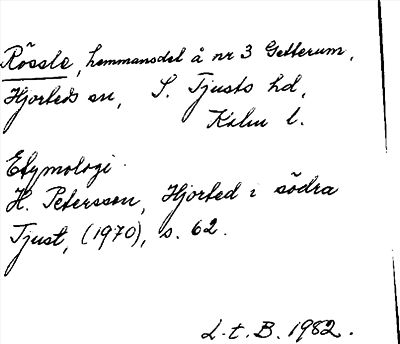 Rössle, hemmansdel å nr 3 Getterum,
Hjorteds sn, S. Tjusts hd,
Kalm l.
Etymologi.
H. Petersson, Hjorted i södra
Tjust, (1970), s. 62.
L.t.B. 1982.